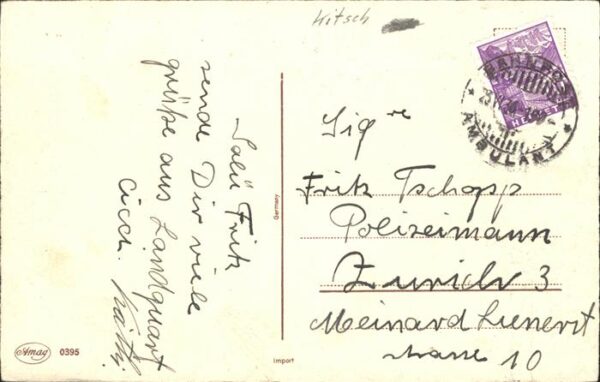 Kitsch
Salü Fritz
sende Dir viele
grüsse aus Landquart
Cicch. Käthi
Sig re
Fritz Tschopp
Polizeimann
Zürich 3
Meinard Lienert
strasse 10
BAHNPOST
AMBULANT
HELV
Germany
Import
Amag 0395